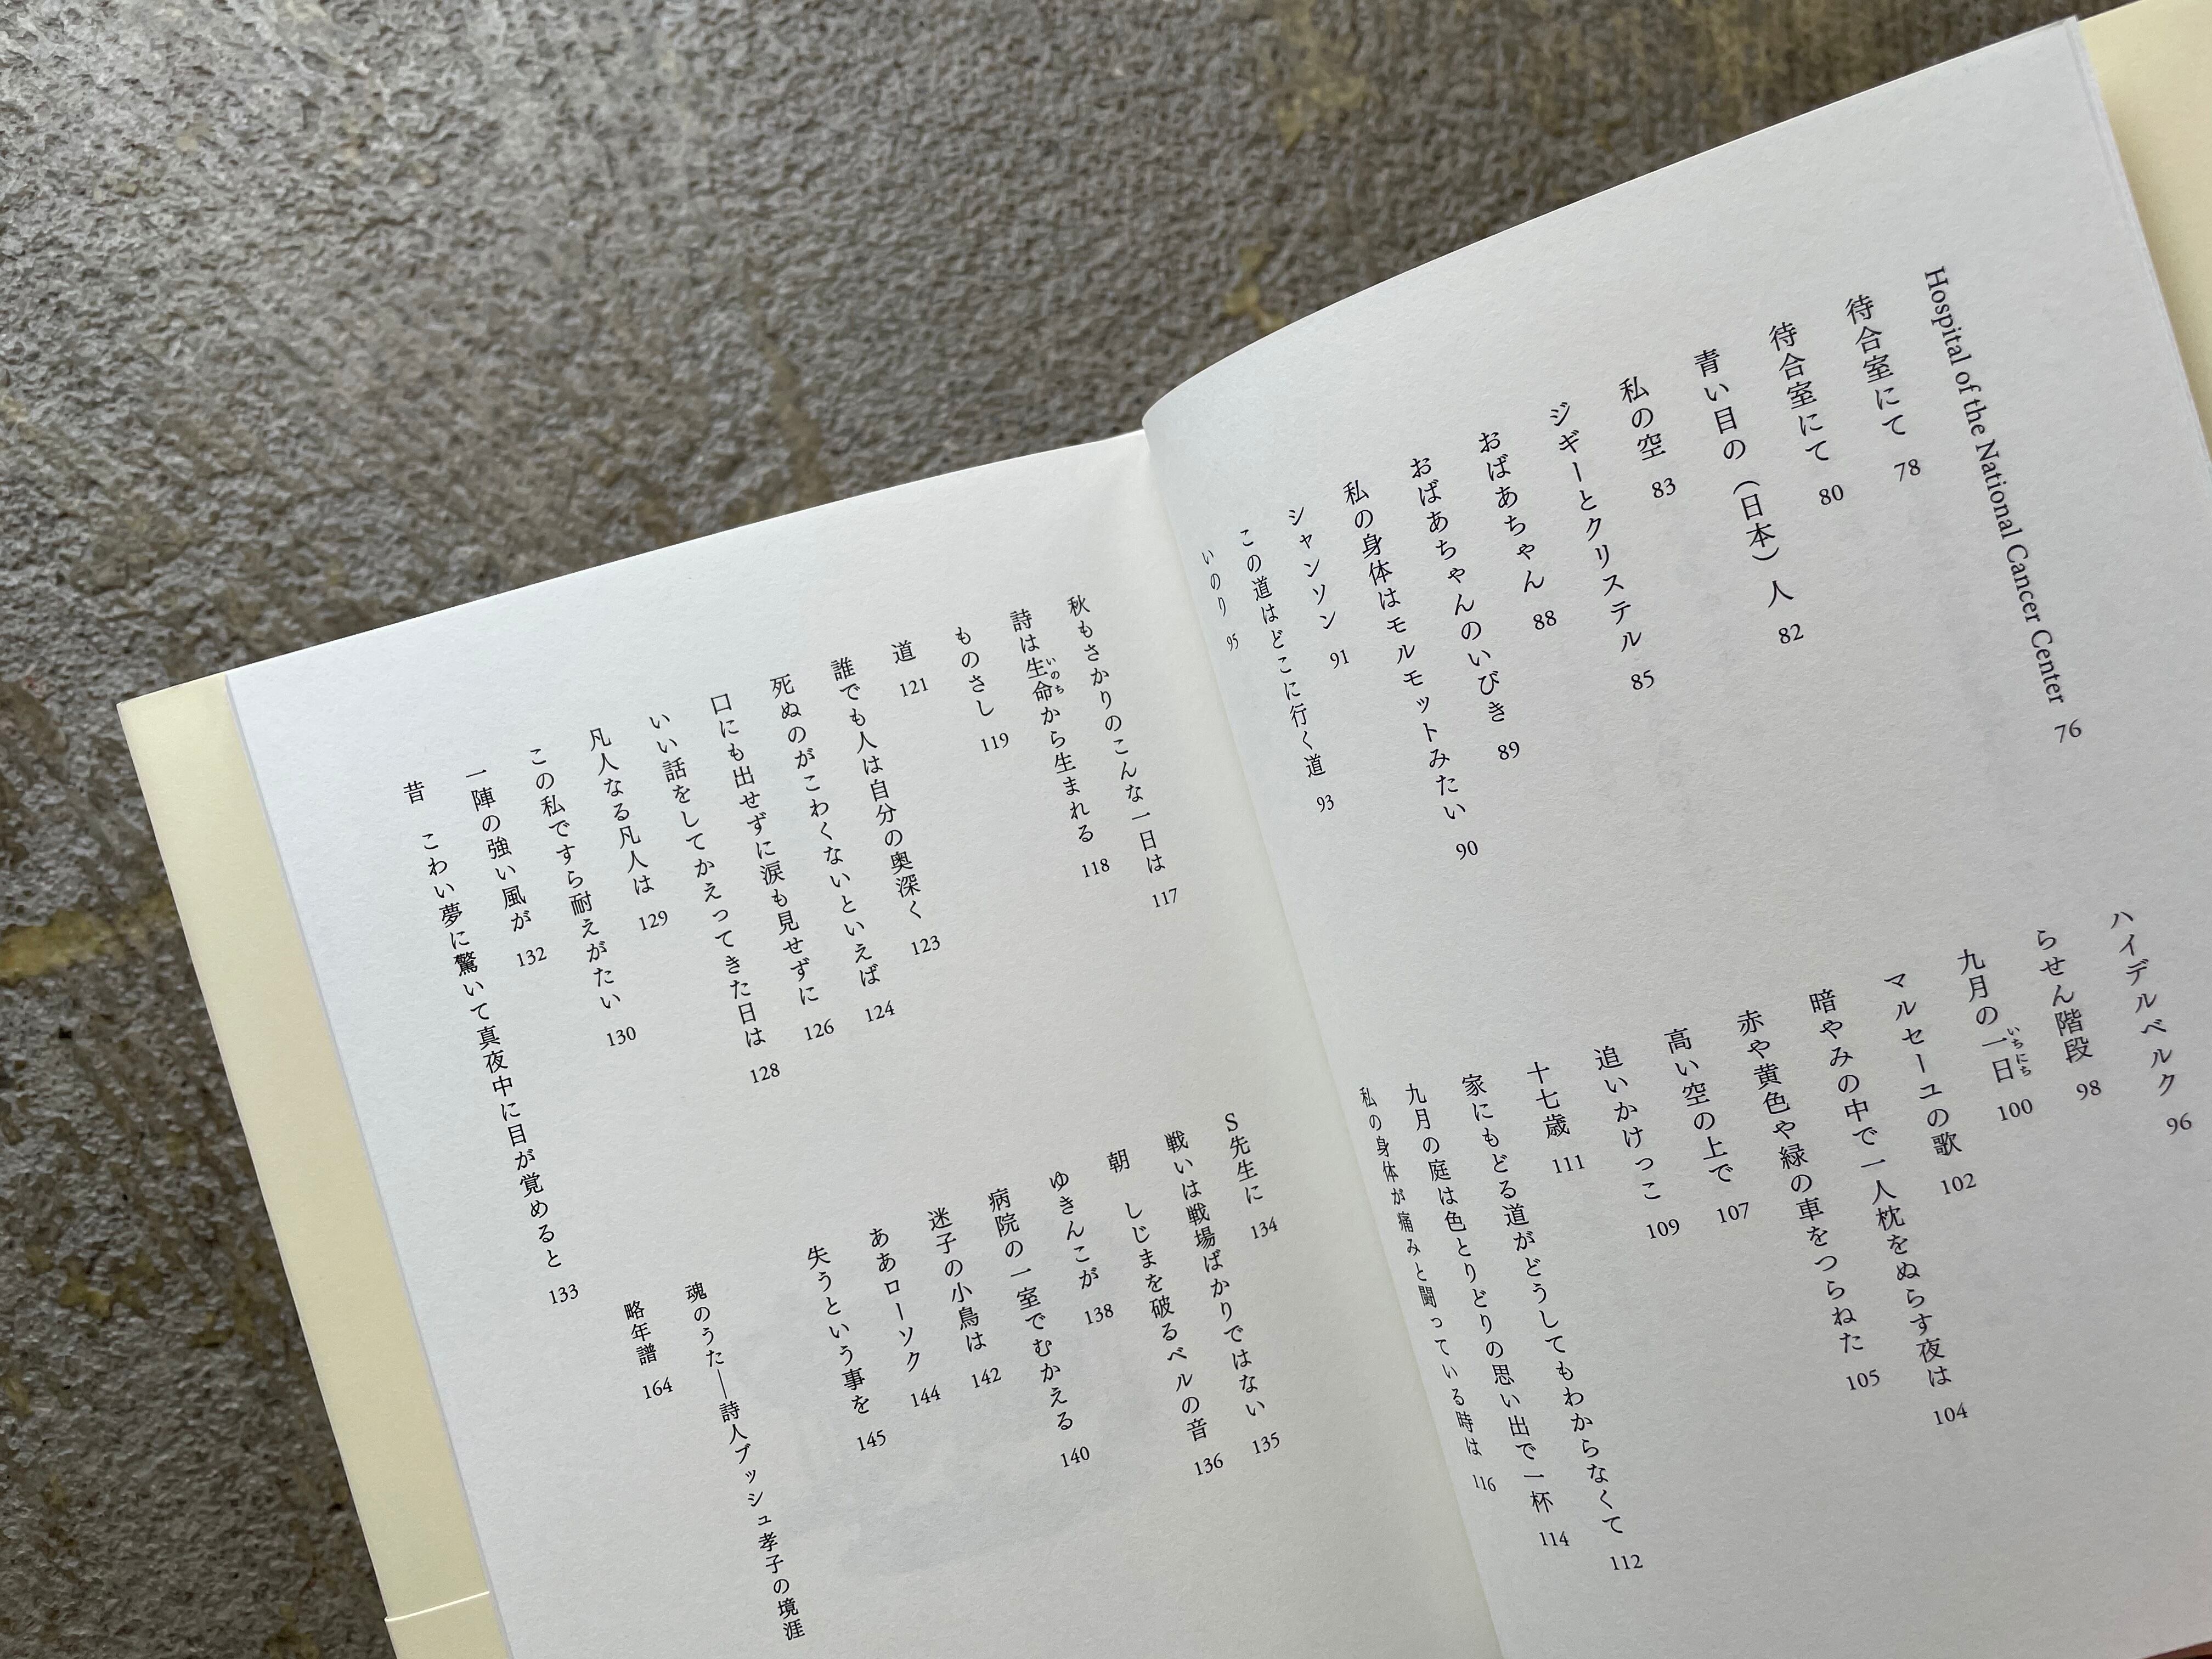 Hospital of the National Cancer Center 76
待合室にて 78
待合室にて 80
青い目の（日本）人 82
私の空 83
ジギーとクリステル 85
おばあちゃん 88
おばあちゃんのいびき 89
私の身体はモルモットみたい 90
シャンソン 91
この道はどこに行く道 93
いのり 95
ハイデルベルク 96
らせん階段 98
九月の一日 100
いちにち
マルセーユの歌 102
暗やみの中で一人枕をぬらす夜は 104
赤や黄色や緑の車をつらねた 105
高い空の上で 107
追いかけっこ 109
十七歳 111
家にもどる道がどうしてもわからなくて 112
九月の庭は色とりどりの思い出で一杯 114
私の身体が痛みと闘っている時は 116
秋もさかりのこんな一日は 117
詩は生命から生まれる 118
いのち
ものさし 119
道 121
誰でも人は自分の奥深く 123
死ぬのがこわくないといえば 124
口にも出せずに涙も見せずに 126
いい話をしてかえってきた日は 128
凡人なる凡人は 129
この私ですら耐えがたい 130
一陣の強い風が 132
昔　こわい夢に驚いて真夜中に目が覚めると 133
S先生に 134
戦いは戦場ばかりではない 135
朝　しじまを破るベルの音 136
ゆきんこが 138
病院の一室でむかえる 140
迷子の小鳥は 142
ああローソク 144
失うという事を 145
魂のうた──詩人ブッシュ孝子の境涯
略年譜 164